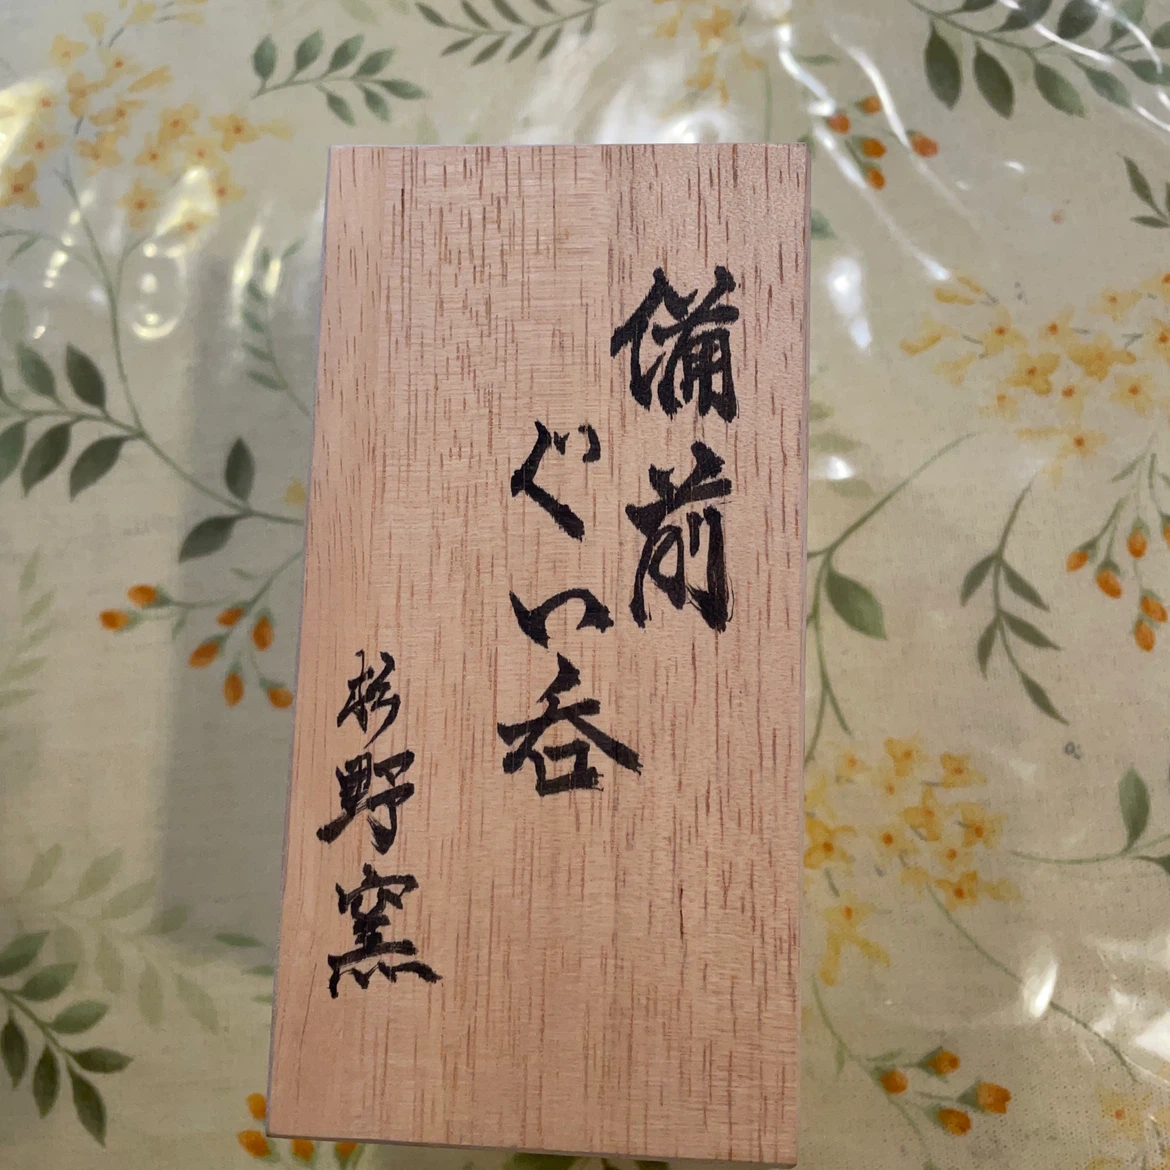 備前
ぐい呑
杉野窯